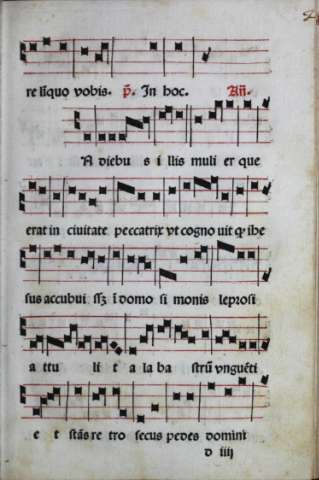 re līquo vobis. p̄. In hoc. Añ.
N diebu s i llis muli er que
erat in ciuitate peccatrix vt cogno uit qꝫ ihe
sus accubui ssꝫ ī domo si monis leprosi
a ttu li t a la ba strū vnguēti
e t stās re tro secus pedes domini
d iiij